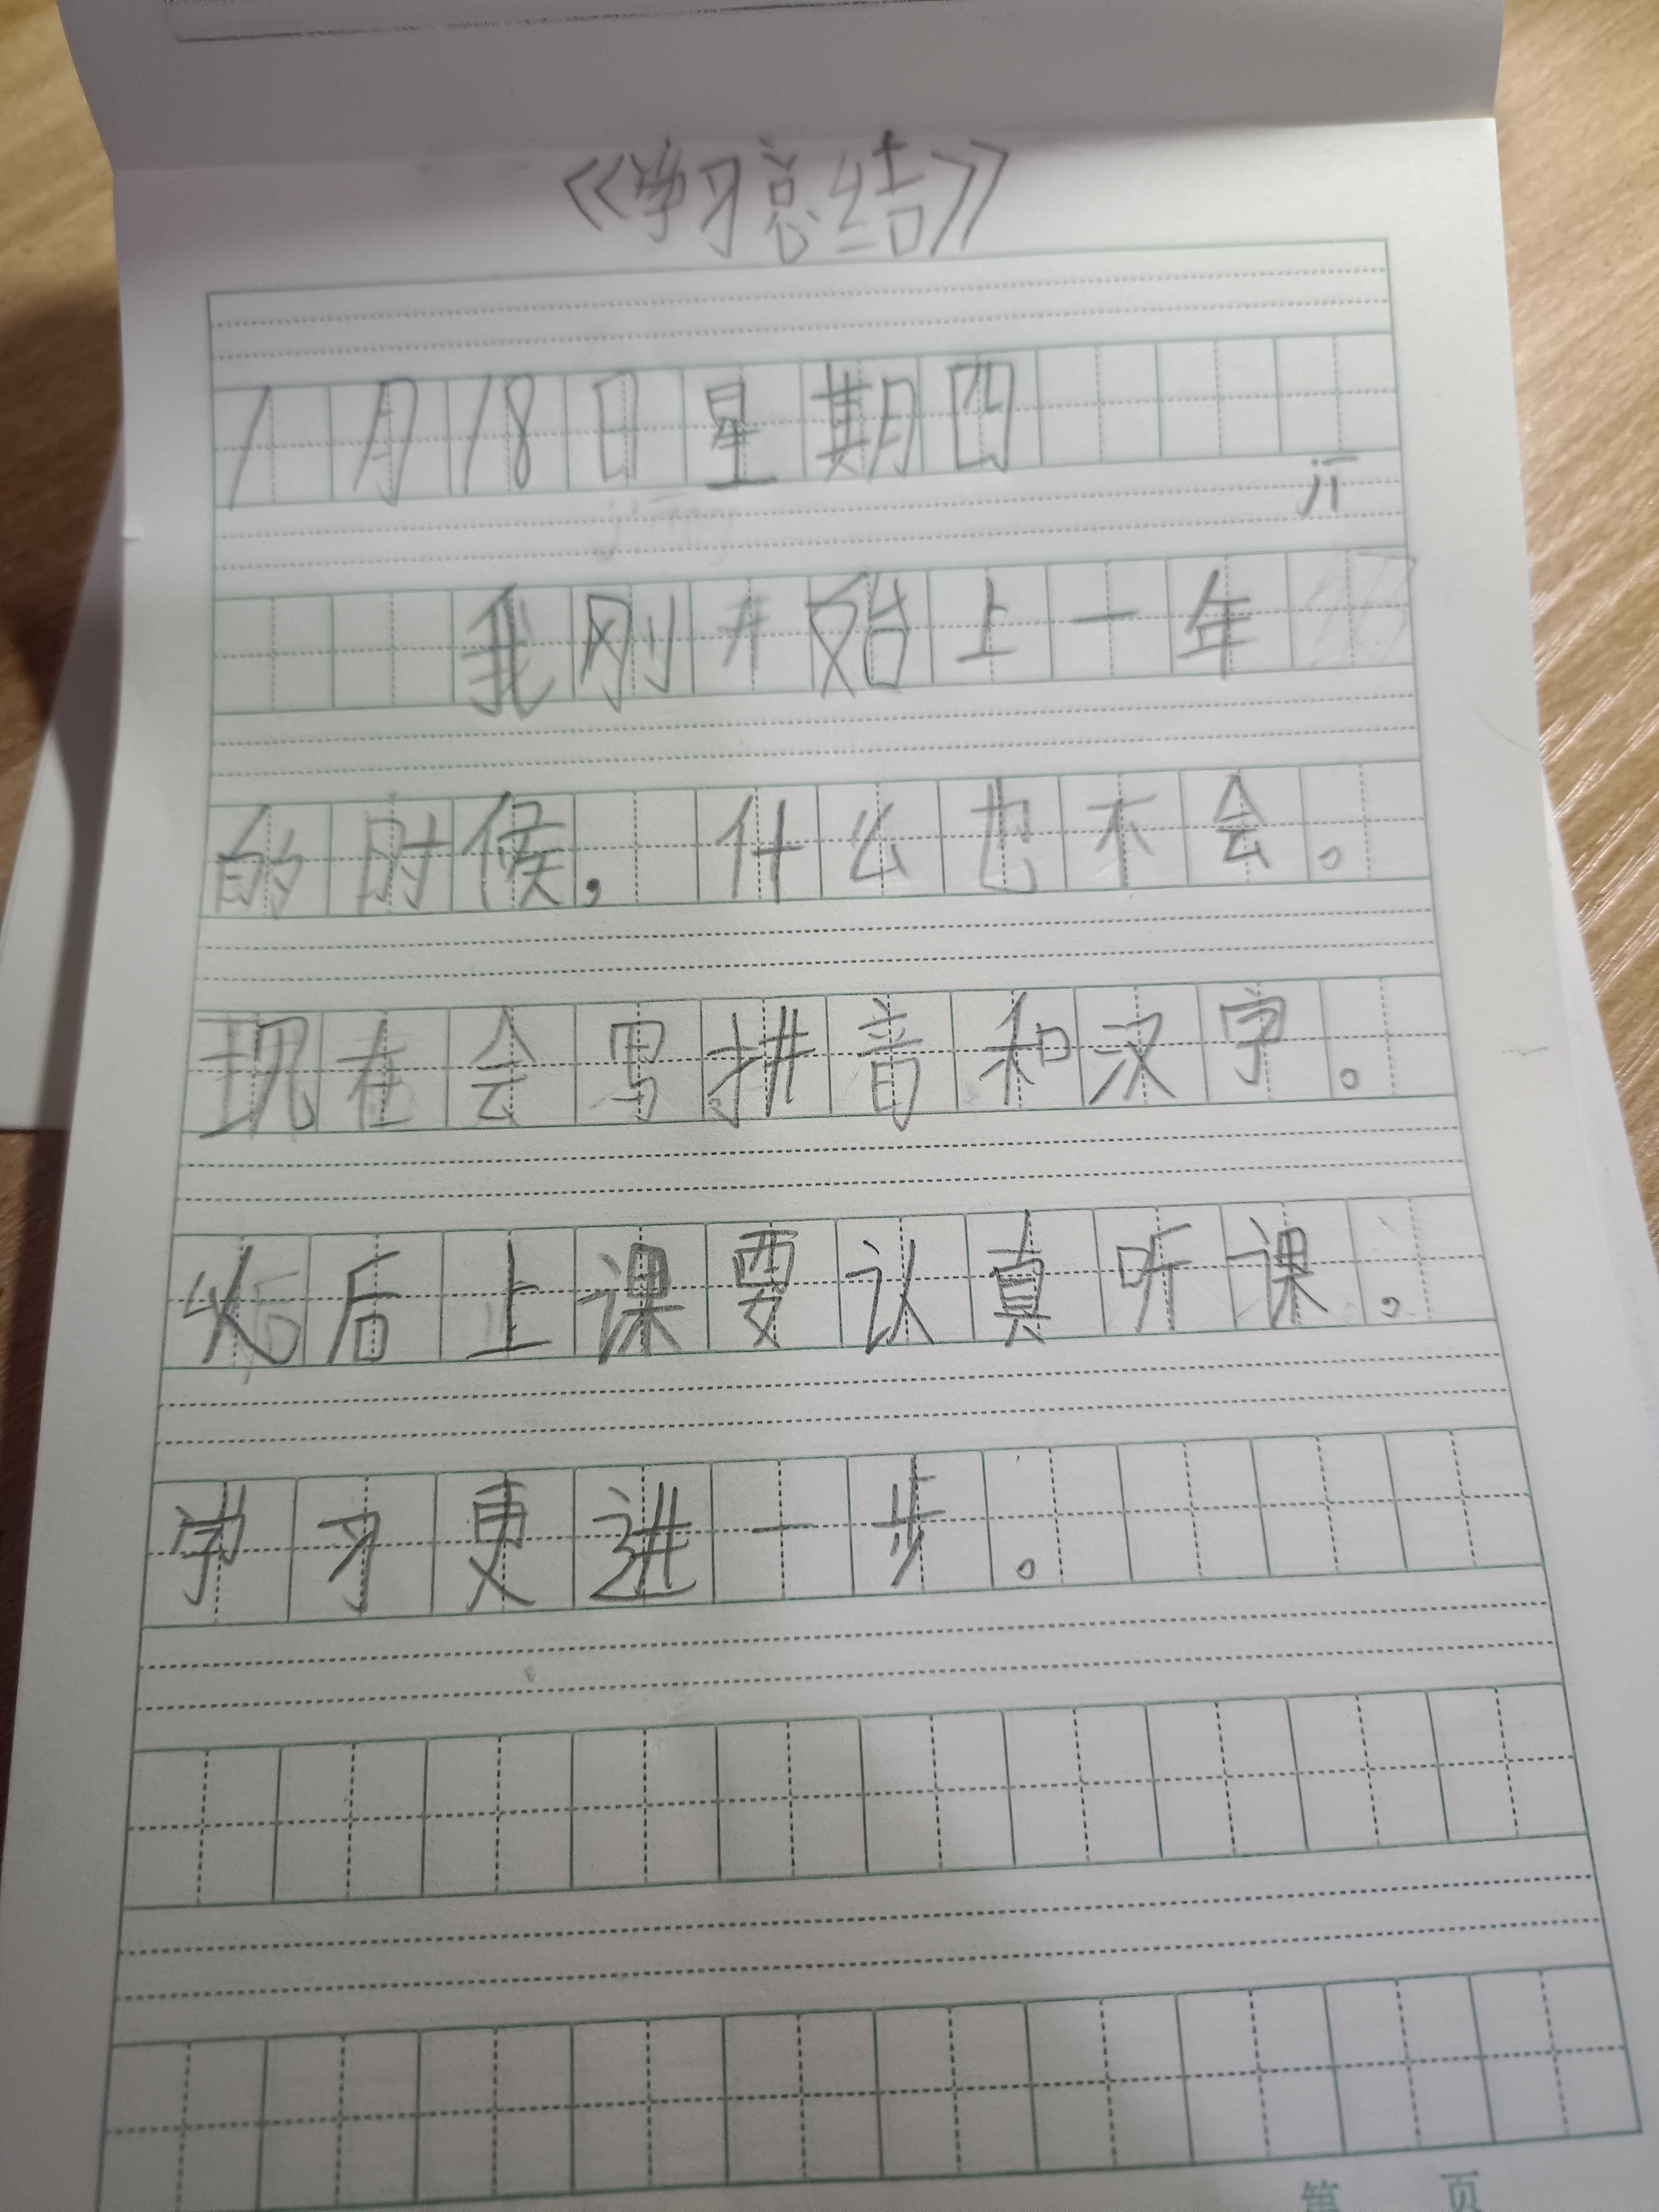 《学习总结》
1月18日星期四
jī
我刚开始上一年
的时候，什么也不会。
现在会写拼音和汉字。
以后上课要认真听课。
学习更进一步。
第 页